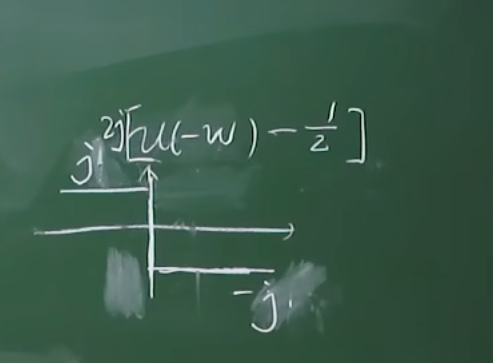 2j[u(-w) - 1/2]
j
-j